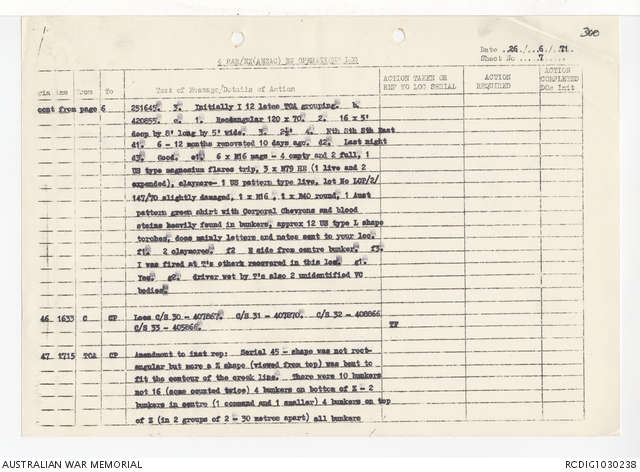 300
4 RAR/NZ(ANZAC) BN OPERATIONS LOG
Date 26/ 6/ 71
Sheet No 7
Time From To Text of Message/Details of Action ACTION TAKEN OR REF TO LOG SERIAL ACTION REQUIRED ACTION COMPLETED DOs Init
cont from page 6
251645. 3. Initially I 12 latos TOA grouping. b.
420855. c. 1. Rectangular 120 x 70. 2. 16 x 5'
deep by 8' long by 5' wide. 3. 2½' 4. Nth Sth East
d1. 6 - 12 months renovated 10 days ago. d2. Last night
d3. Good. e1. 6 x M16 mags - 4 empty and 2 full, 1
US type magnesium flares trip, 3 x M79 HE (1 live and 2
expended), claymore- 1 US pattern type live, lot No LOP/2/
147/70 slightly damaged, 1 x M16, 1 x R40 round, 1 Aust
pattern green shirt with Corporal Chevrons and blood
stains heavily found in bunkers, approx 12 US type L shape
torches, docs mainly letters and notes sent to your loc.
f1. 2 claymores. f2 N side from centre bunker. f3.
I was fired at T's others recovered in this loc. g1.
Yes. g2. driver wet by T's also 2 unidentified VC
bodies.
46. 1633 C CP Locs C/S 30 - 407867. C/S 31 - 407870. C/S 32 - 408866
C/S 33 - 405866. TF
47. 1715 TOA CP Amendment to inst rep: Serial 45 - shape was not rect-
angular but more a Z shape (viewed from top) was bent to
fit the contour of the creek line. There were 10 bunkers
not 16 (some counted twice) 4 bunkers on bottom of Z - 2
bunkers in centre (1 command and 1 smaller) 4 bunkers on top
of Z (in 2 groups of 2 - 30 metres apart) all bunkers
AUSTRALIAN WAR MEMORIAL
RCDIG1030238